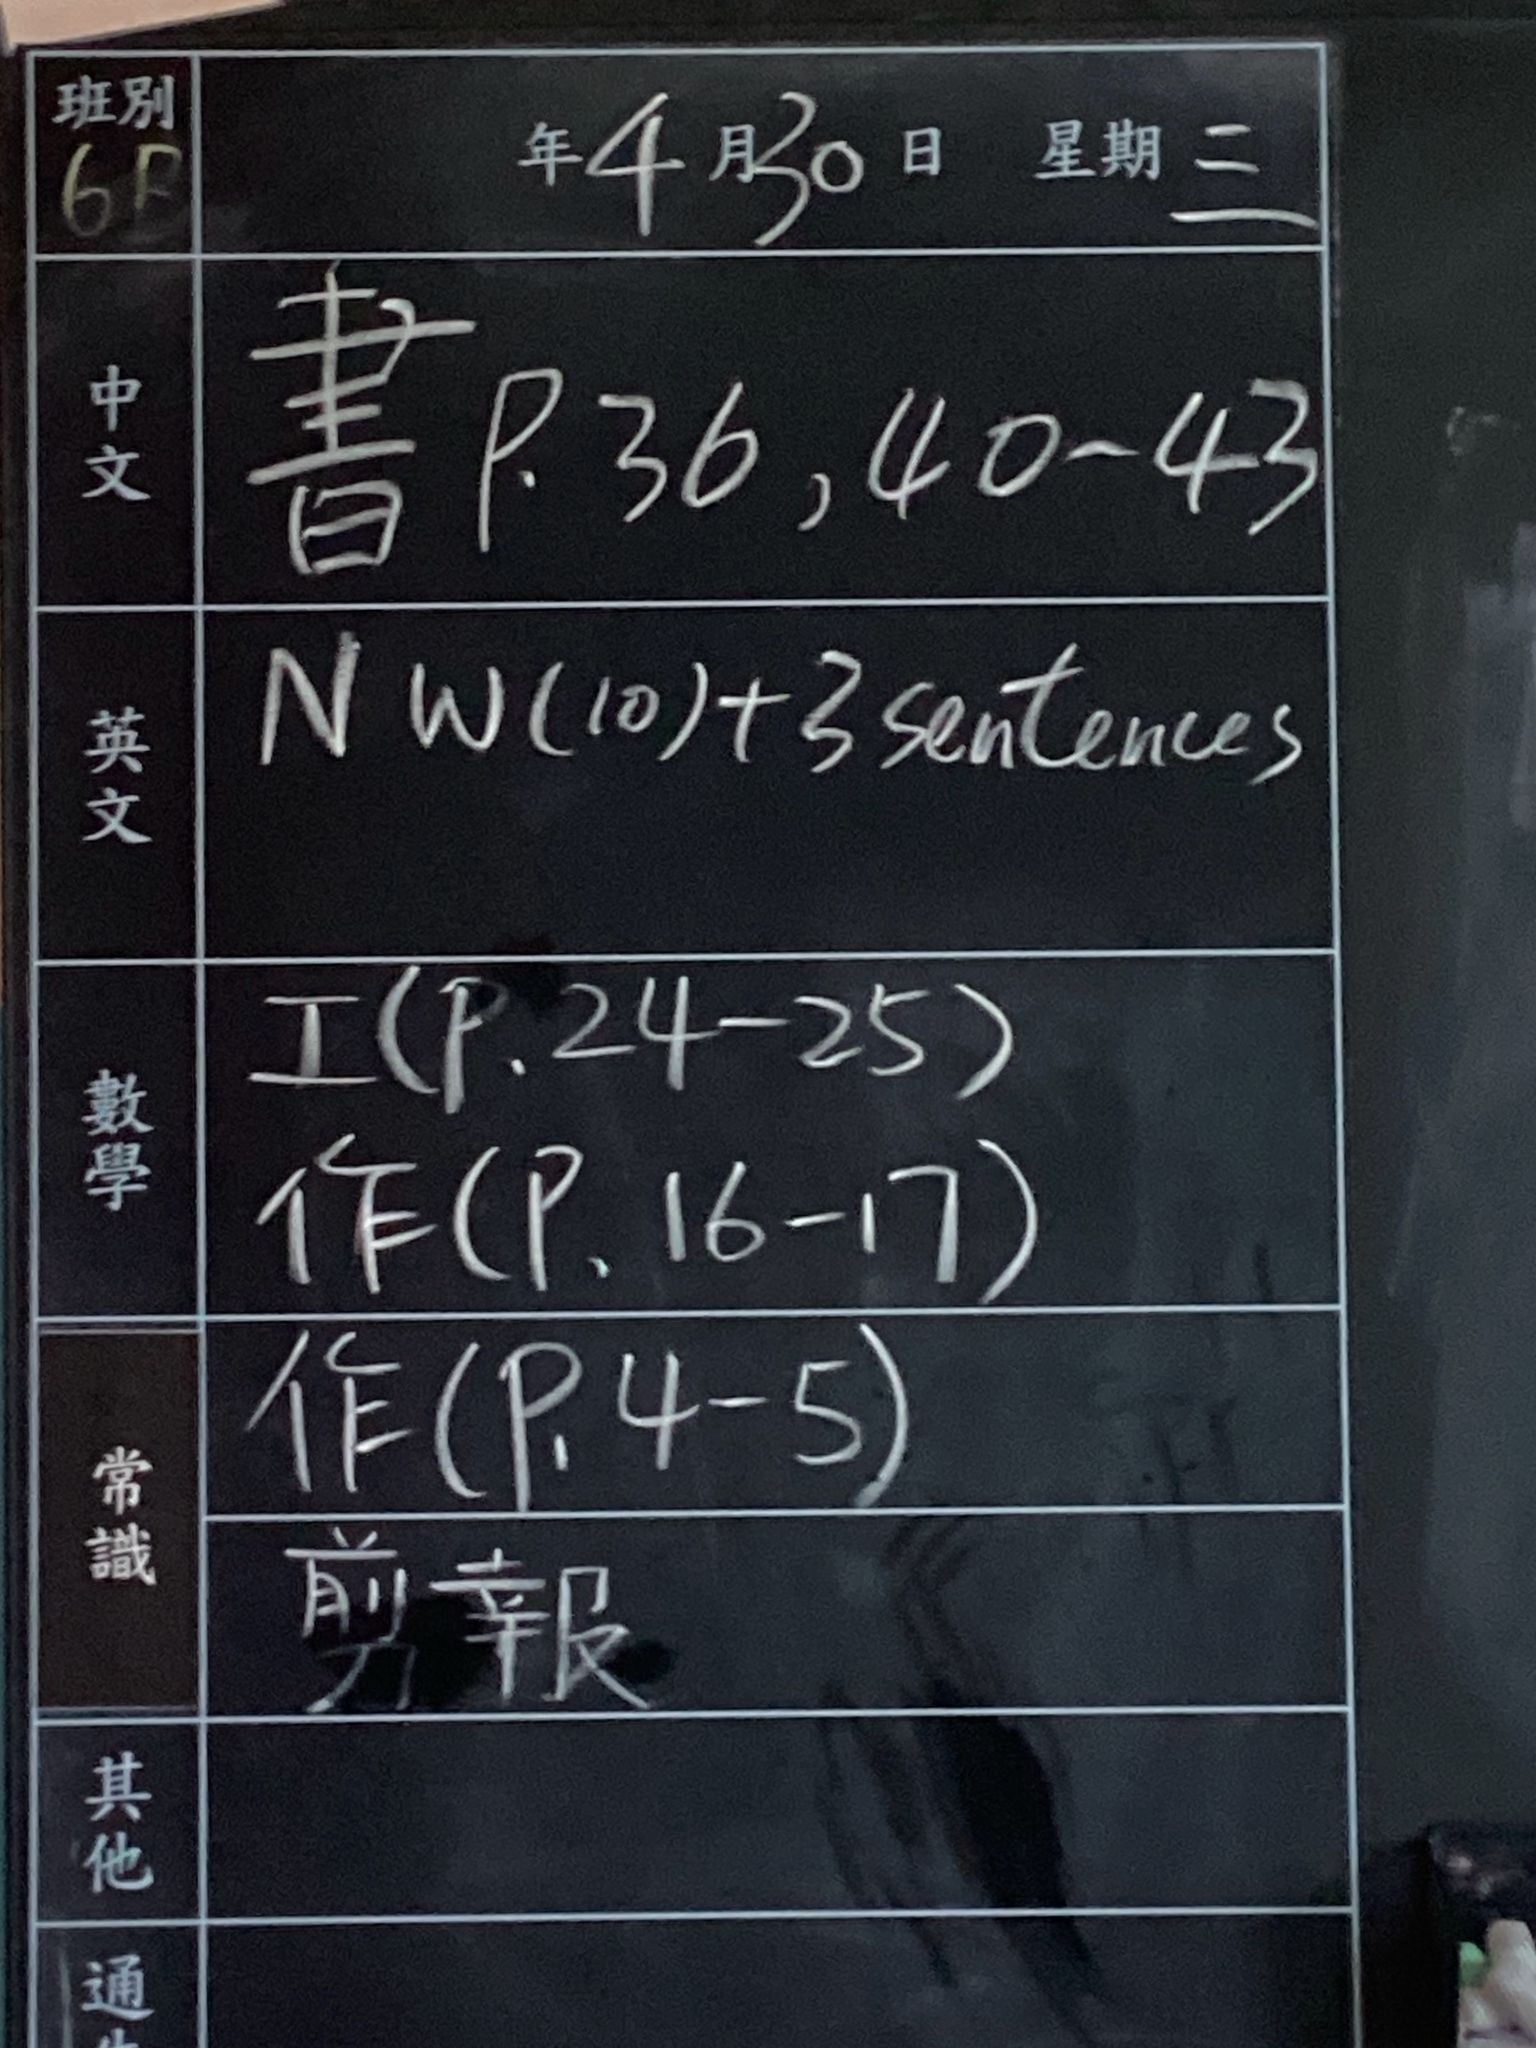 班別
6
年4月30日 星期三
中文
書 P. 36, 40~43
英文
NW(10)+3 sentences
數學
工(P.24-25)
作(P.16-17)
常識
作(P.4-5)
剪報
其他
通